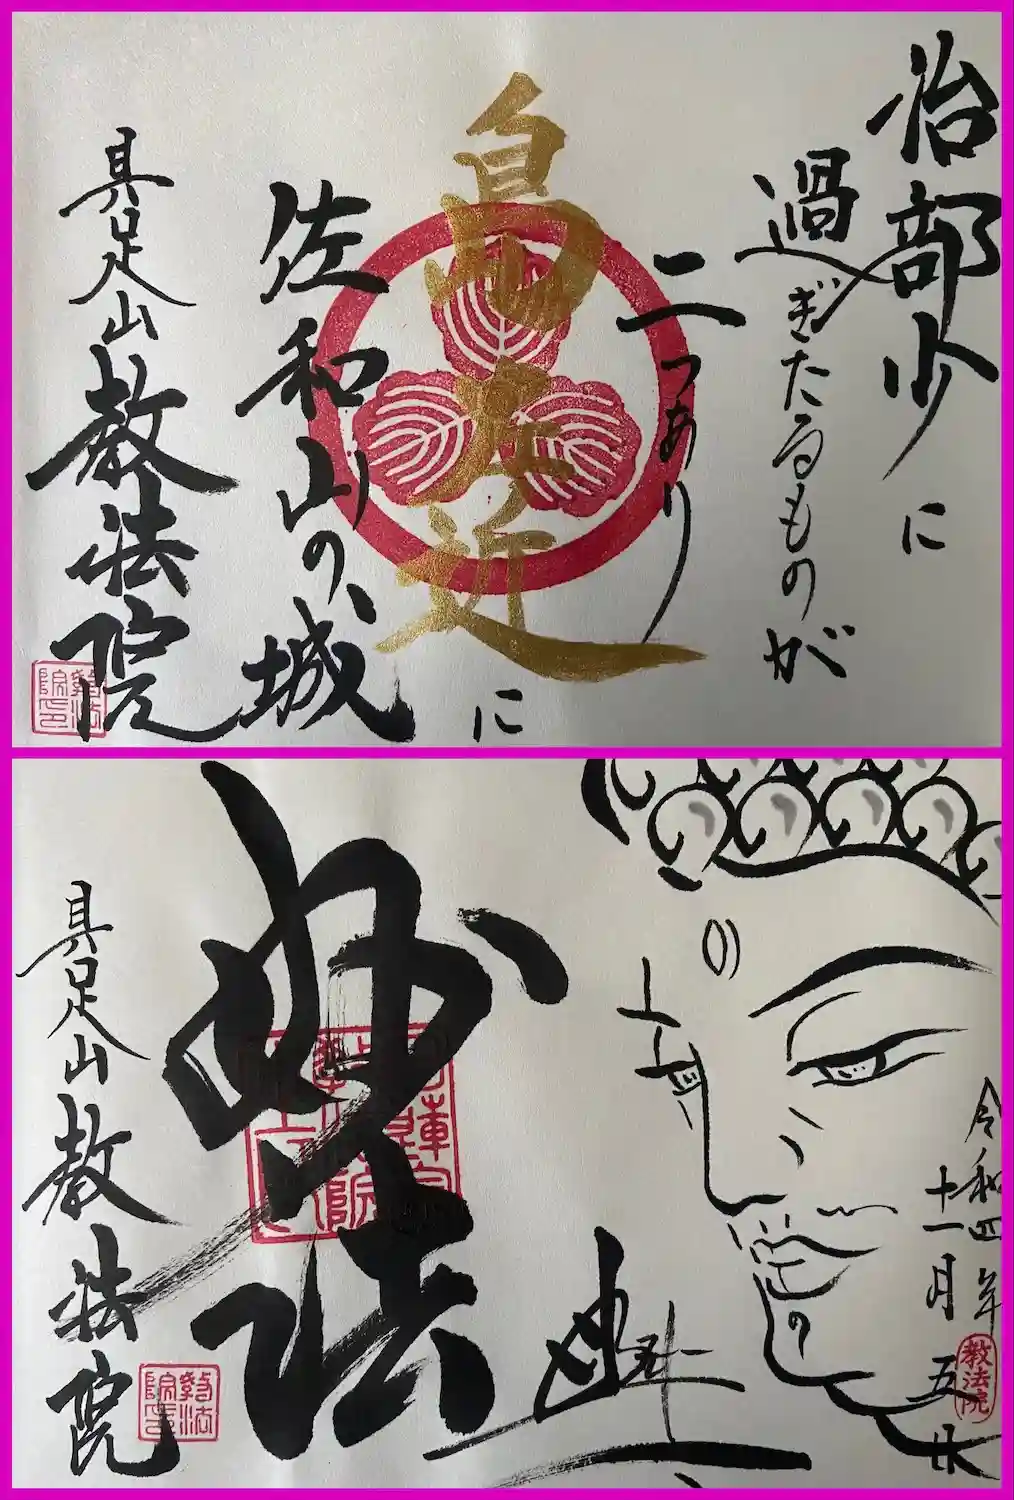 治部少に
過ぎたるものが
二つあり
島左近に
佐和山の城
具足山教法院
教法院印
令和四年
十一月五日
教法院
妙法
具足山教法院
教法院印